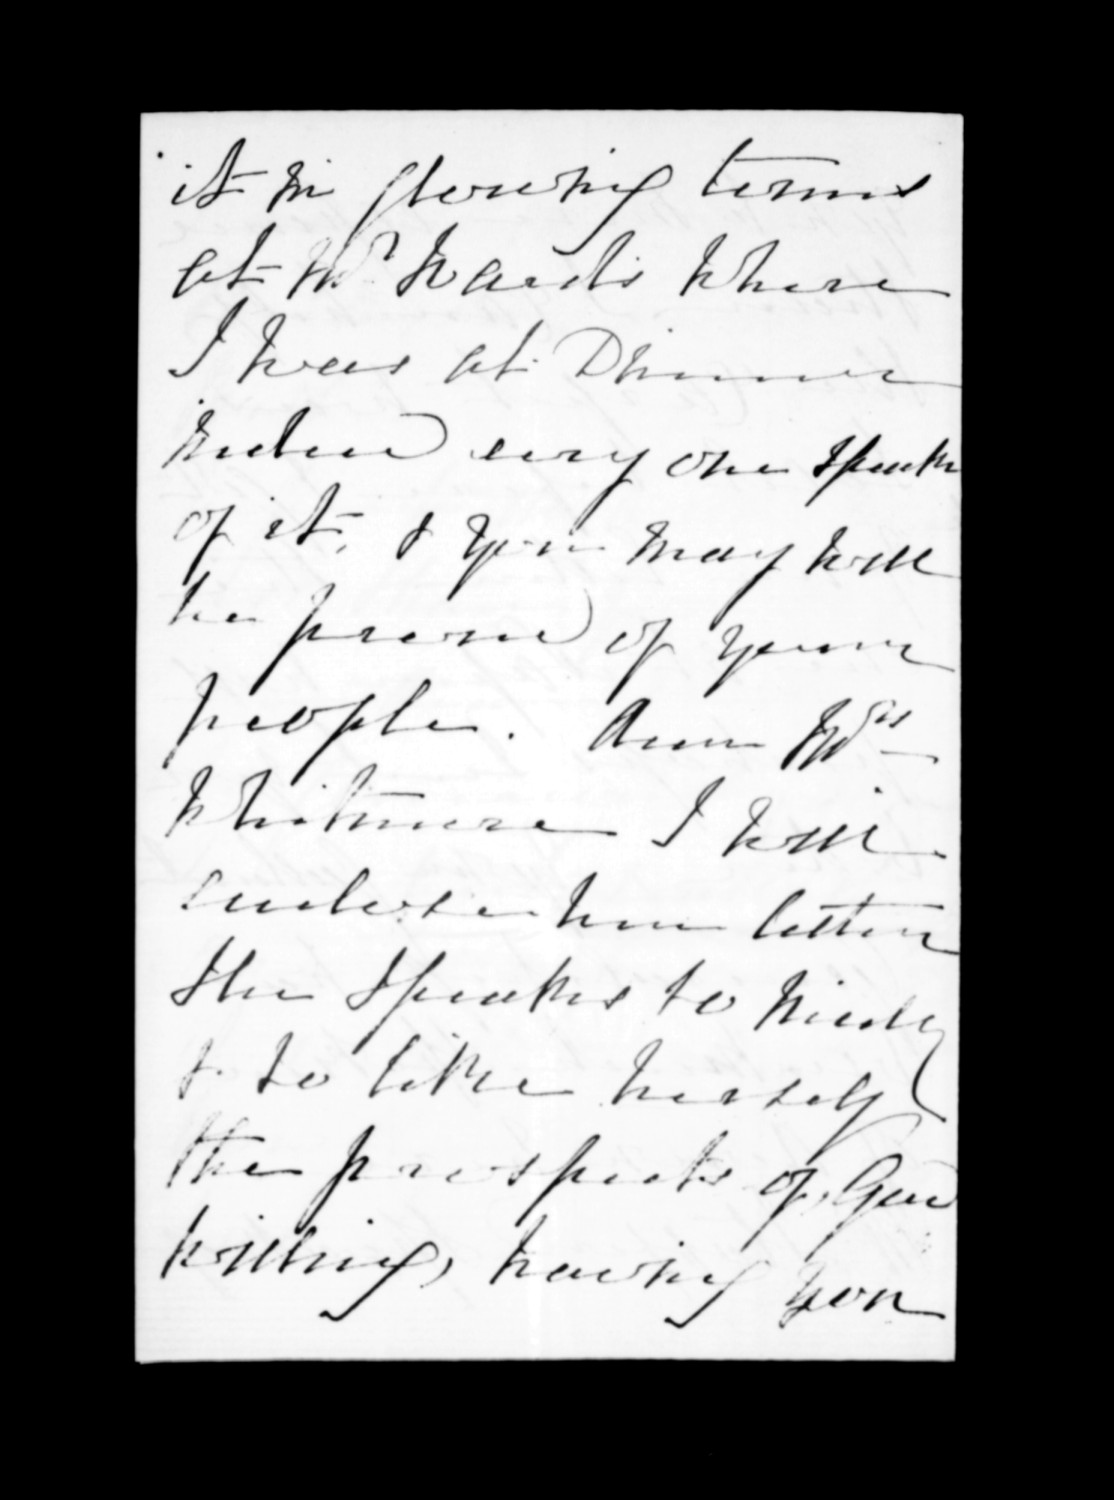 it in glowing terms
at Mr Wards where
I was at Dinner
indeed every one speaks
of it, & you may well
be proud of your
people. Dear Mrs
Whitmore I will
enclose her letter
She speaks so kindly
& so like herself
the prospects of, God
willing, having you